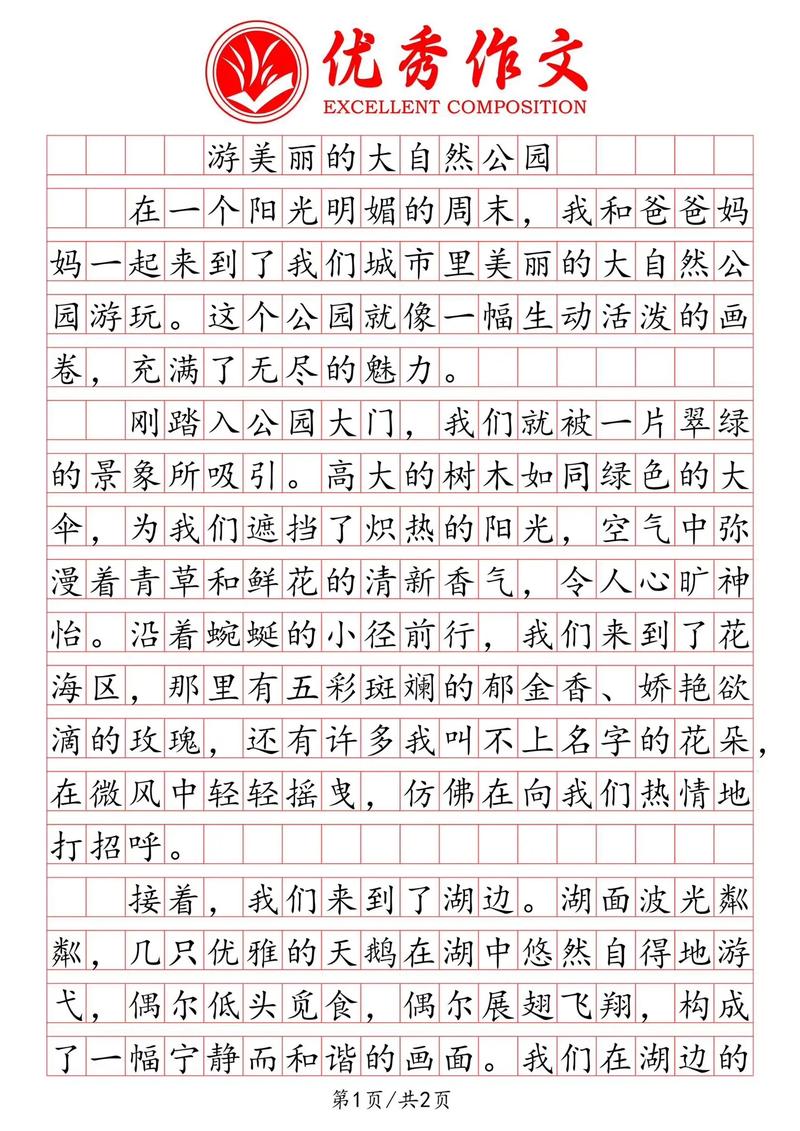 优秀作文
EXCELLENT COMPOSITION
游美丽的大自然公园
在一个阳光明媚的周末，我和爸爸妈
妈一起来到了我们城市里美丽的大自然公
园游玩。这个公园就像一幅生动活泼的画
卷，充满了无尽的魅力。
刚踏入公园大门，我们就被一片翠绿
的景象所吸引。高大的树木如同绿色的大
伞，为我们遮挡了炽热的阳光，空气中弥
漫着青草和鲜花的清新香气，令人心旷神
怡。沿着蜿蜒的小径前行，我们来到了花
海区，那里有五彩斑斓的郁金香、娇艳欲
滴的玫瑰，还有许多我叫不上名字的花朵，
在微风中轻轻摇曳，仿佛在向我们热情地
打招呼。
接着，我们来到了湖边。湖面波光粼
粼，几只优雅的天鹅在湖中悠然自得地游
弋，偶尔低头觅食，偶尔展翅飞翔，构成
了一幅宁静而和谐的画面。我们在湖边的
第1页/共2页